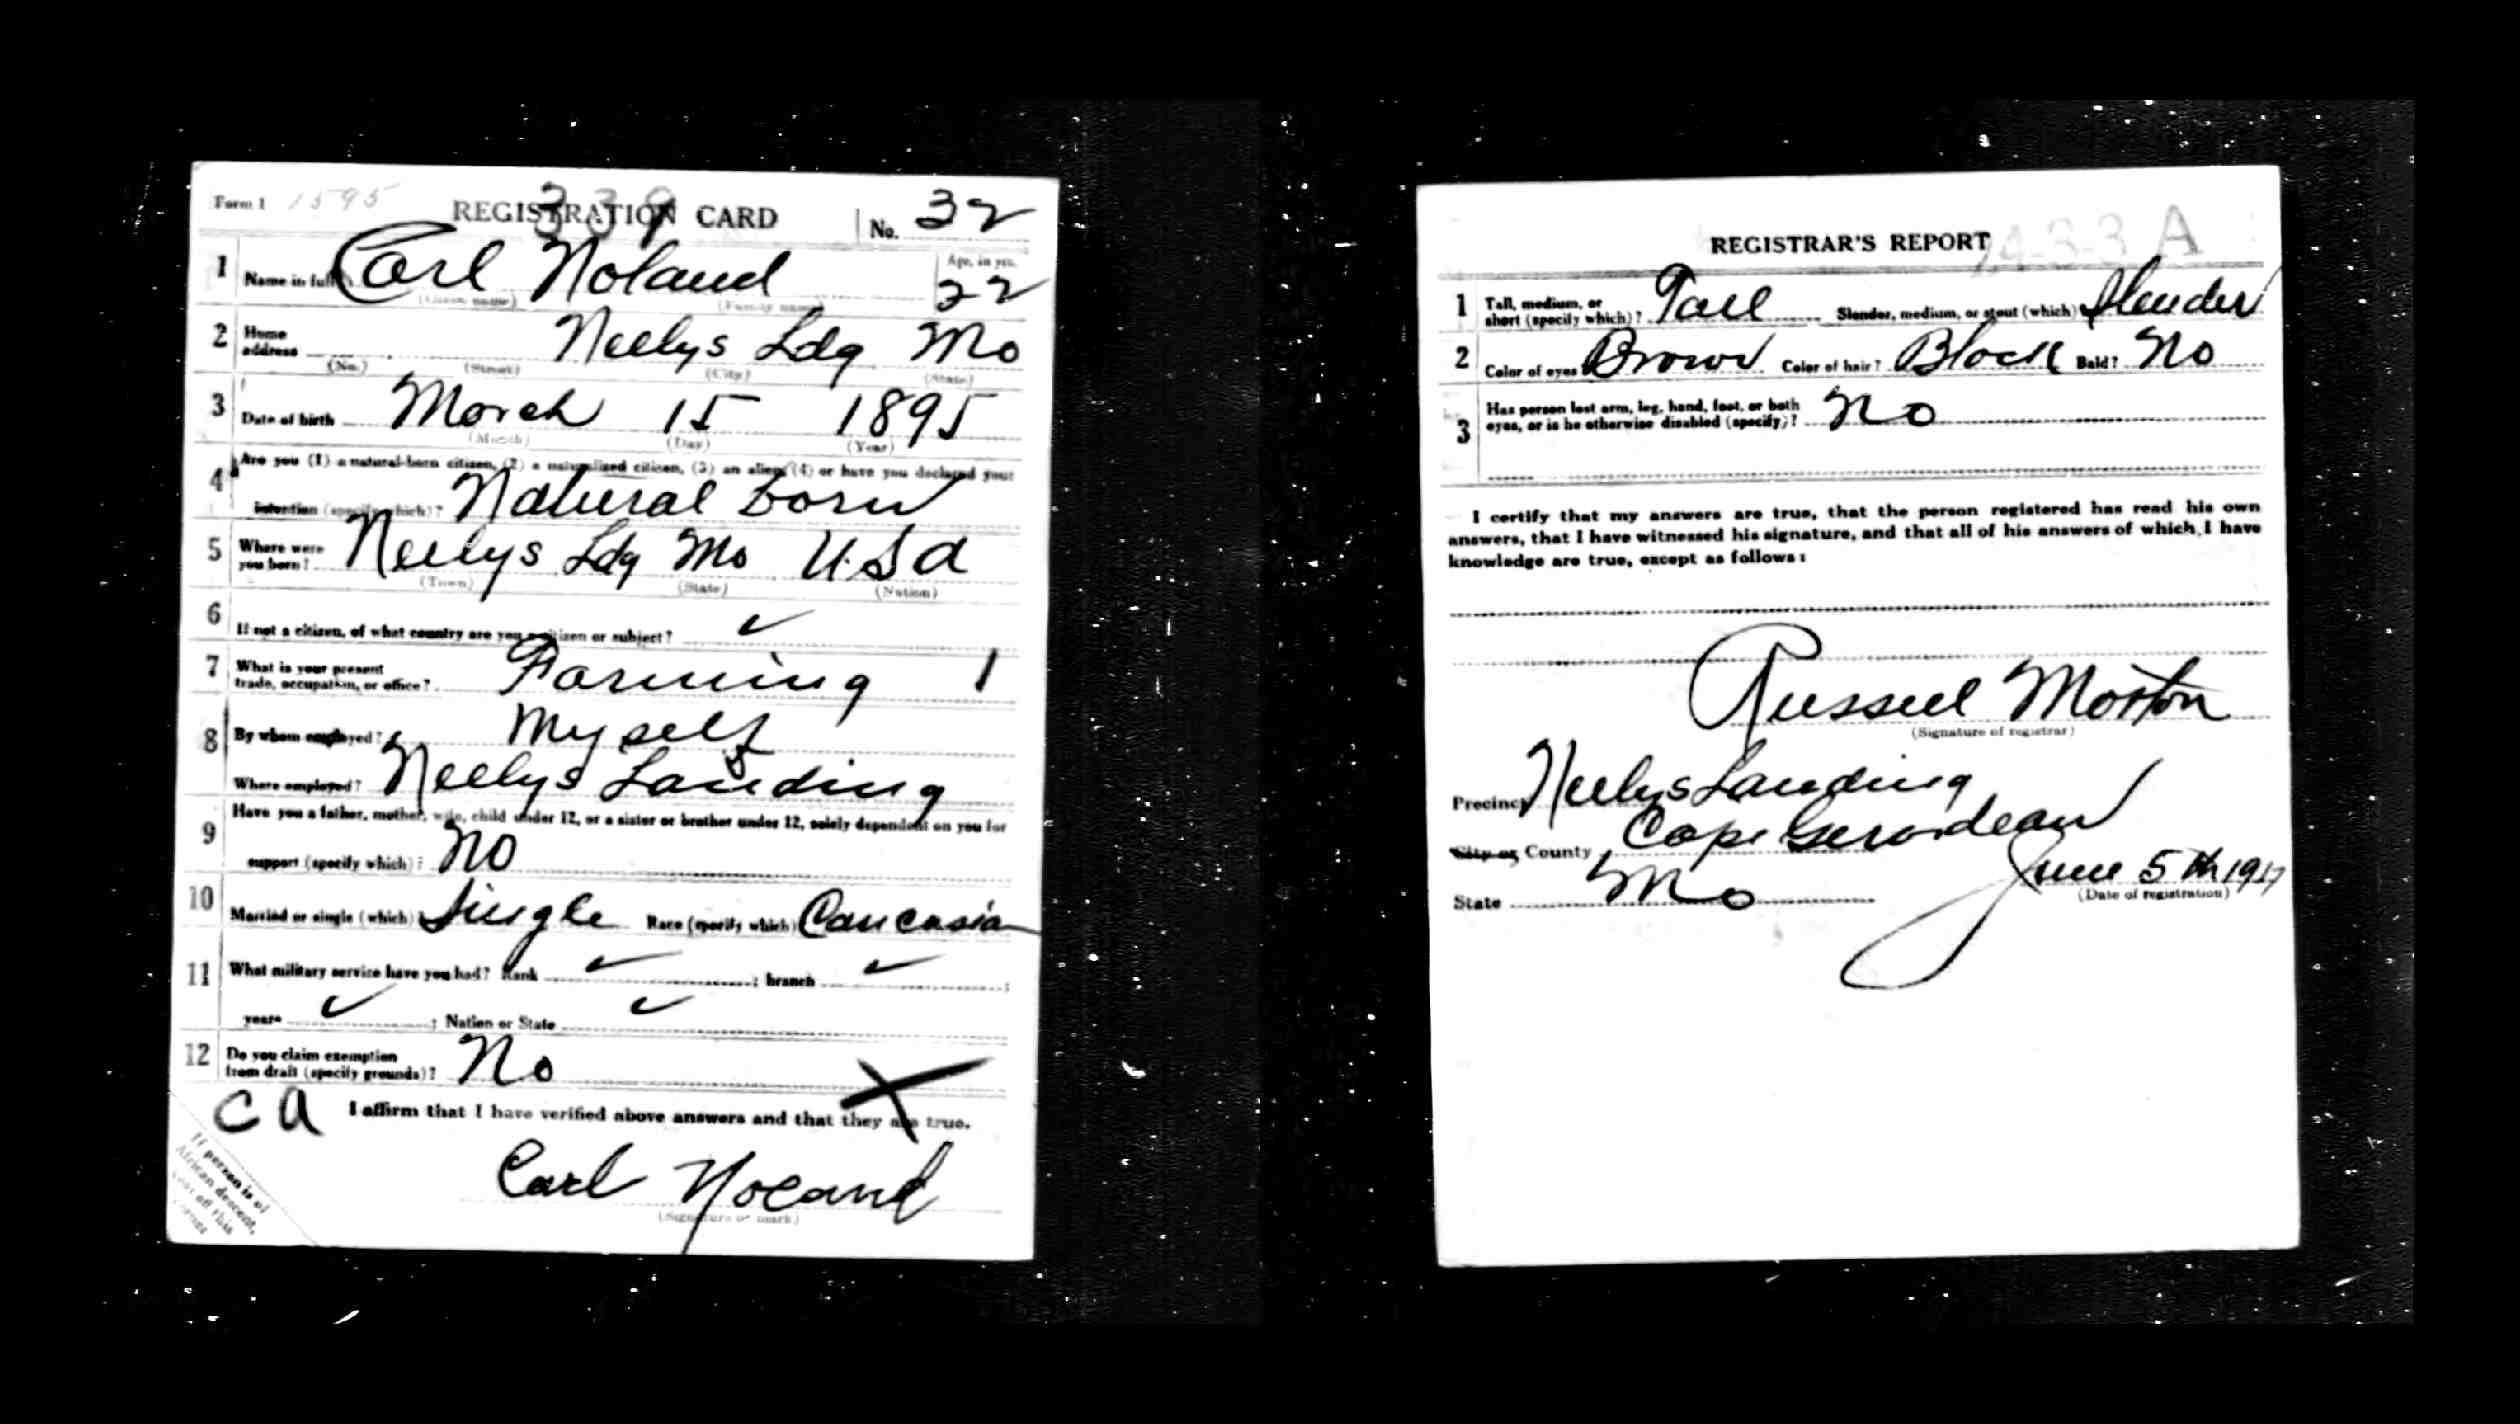 Form 1 1595 REGISTRATION CARD No. 32
339
1 Name in full Carl Noland Age, in yrs. 22
(Given name) (Family name)
2 Home address Neelys Ldg Mo
(No.) (Street) (City) (State)
3 Date of birth March 15 1895
(Month) (Day) (Year)
4 Are you (1) a natural-born citizen, (2) a naturalized citizen, (3) an alien, (4) or have you declared your
intention (specify which)? Natural born
5 Where were you born? Neelys Ldg Mo U.S a
(Town) (State) (Nation)
6 If not a citizen, of what country are you a citizen or subject? ✓
7 What is your present trade, occupation, or office? Farming 1
8 By whom employed? Myself
Where employed? Neelys Landing
9 Have you a father, mother, wife, child under 12, or a sister or brother under 12, solely dependent on you for
support (specify which)? No
10 Married or single (which)? Single Race (specify which)? Caucasian
11 What military service have you had? Rank ✓ ; branch ✓ ;
years ✓ ; Nation or State ✓
12 Do you claim exemption from draft (specify grounds)? No
X
C A I affirm that I have verified above answers and that they are true.
Carl Noland
(Signature or mark)
If person is of
African descent,
off this
corner
REGISTRAR'S REPORT 24-3-3 A
1 Tall, medium, or short (specify which)? Tall Slender, medium, or stout (which)? Slender
2 Color of eyes? Brown Color of hair? Black Bald? No
3 Has person lost arm, leg, hand, foot, or both
eyes, or is he otherwise disabled (specify)? No
I certify that my answers are true, that the person registered has read his own
answers, that I have witnessed his signature, and that all of his answers of which I have
knowledge are true, except as follows:
Russell Morton
(Signature of registrar)
Precinct Neelys Landing
City or County Cape Gerardeau
State Mo June 5th 1917
(Date of registration)